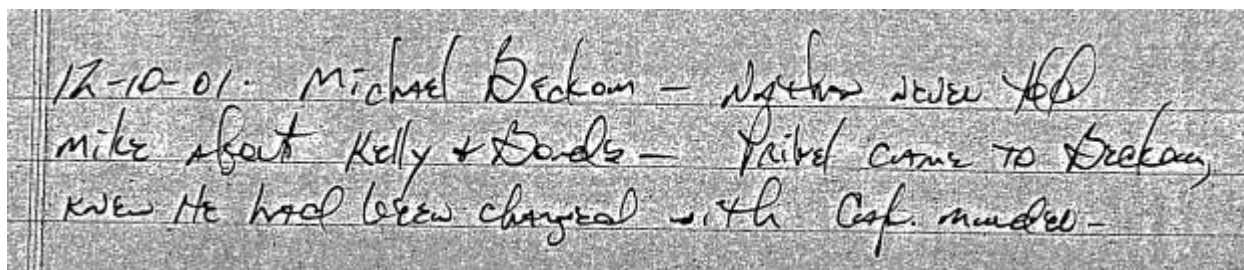 12-10-01. Michael Beckom - Nathan never told
Mike about Kelly & Bonds - Pribel came to Beckom,
knew He had been charged with Cap. murder -